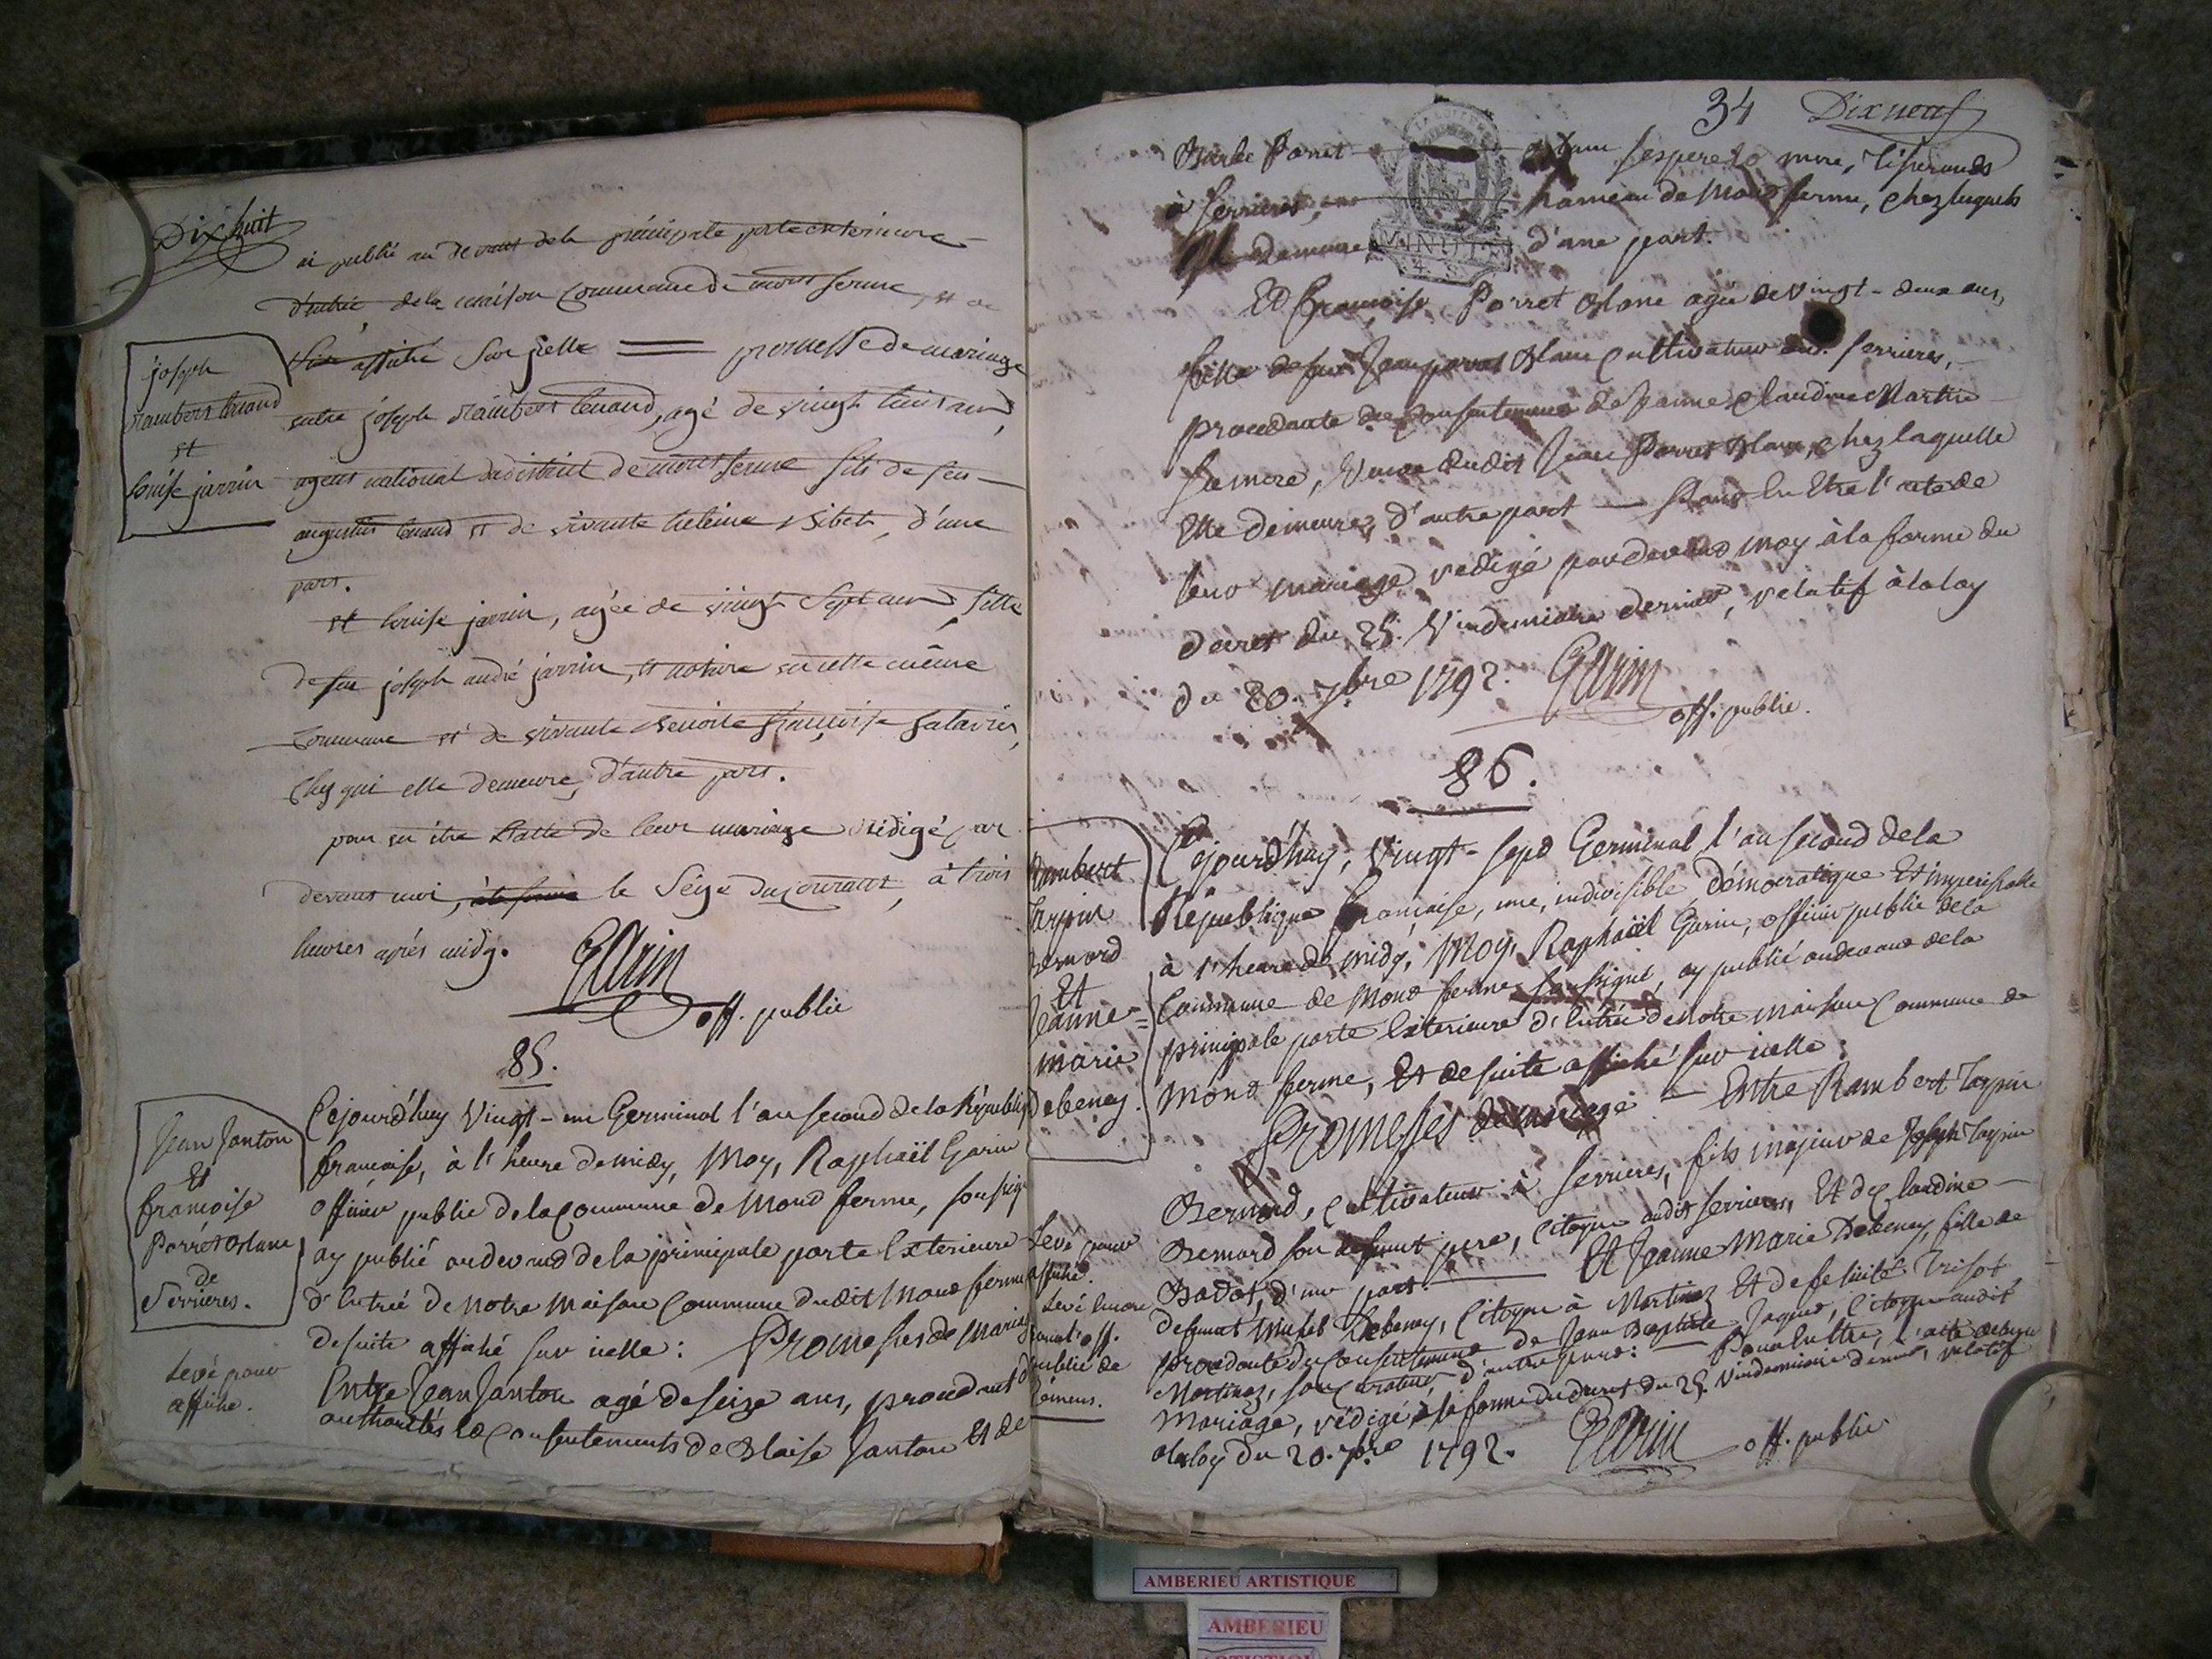 Dix huit
ai publié au devant de la principale porte exterieure
d'entrée de la maison Commune de mont ferme, et ai
affiché sur jcelle promesse de mariage
joseph
Rambert tenand
et
louise jarrin
entre joseph Rambert tenand, agé de vingt trois ans,
agent national du district de mont ferme fils de feu
augustin tenand et de vivante heleine sibet, d'une
part.
et louise jarrin, agée de vingt sept ans, fille
de feu joseph andré jarrin, notaire en cette même
Commune et de vivante benoite françoise
Chez qui elle demeure, d'autre part.
pour en être l'acte de leur mariage rédigé par
devant moi, le Seize du courant, à trois
heures après midy.
Garin
off. public
85.
Jean Janton
Et
françoise
Porret Blanc
de
Serrieres.
Levé pour
affiche.
Cejourd'huy Vingt-un Germinal l'an second de la République
francaise, à l'heure de midy, Moy, Raphaël Garin
officier public de la Commune de Mond ferme, soussigné
ay publié au devand de la principale porte Exterieure
d'Entrée de Notre Maison Commune dudit Mond ferme
de suite affiché sur icelle: Promesses de Mariage
Entre Jean Janton agé de seize ans, procedant
authorités & Consentements de Blaise Janton Et de
34 Dix neuf
Barbe Porret Blanc ses pere & mere, Tisserands
à Serrieres, hameau de Mond ferme, chez lesquels
MINUTE
demeure, d'une part.
Et Françoise Porret Blanc agée de Vingt-deux ans,
fille de feu Jean porret Blanc Cultivateur aud. Serrieres,
procedante du Consentement de Jeanne Claudine Martin
sa mere, Veuve dudit Jean Porret Blanc, chez laquelle
Elle demeure, d'autre part pour En Etre l'acte de
leur mariage rédigé pardevand moy à la forme du
decret du 25. Vindemiaire dernier, relatif à la loy
du 20. 7.bre 1792. Garin
off. public.
86.
Rambert
Tarpin
Bernard
Et
Jeanne
marie
Debeney.
Levé pour
affiche.
Levé Encore
off.
public de
Cejourd'huy, Vingt-sept Germinal l'an second de la
République française, une, indivisible, démocratique Et imperissable
à l'heure de midy, Moy, Raphaël Garin, officier public de la
Commune de Mond ferme soussigné, ay publié audevand de la
principale porte Exterieure d'Entrée de Notre Maison Commune de
Mond ferme, Et de suite affiché sur icelle:
Promesses de mariage Entre Rambert Tarpin
Bernard, Cultivateur à Serrieres, fils majeur de Joseph Tarpin
Bernard son defunt pere, Citoyen audit Serrieres, Et de Claudine
Badot, d'une part. Et Jeanne Marie Debeney, fille de
defunt Michel Debeney, Citoyen à Martinaz Et de felicité Trisot
procedante du Consentement de Jean Baptiste Jaquet, Citoyen audit
Martinaz, son Curateur, d'autre part: Pour En Etre, l'acte de leur
Mariage, rédigé à la forme du decret du 25. Vindemiaire dernier, relatif
à la loy du 20. 7.bre 1792. Garin off. public
AMBERIEU ARTISTIQUE
AMBERIEU
ARTISTIQUE